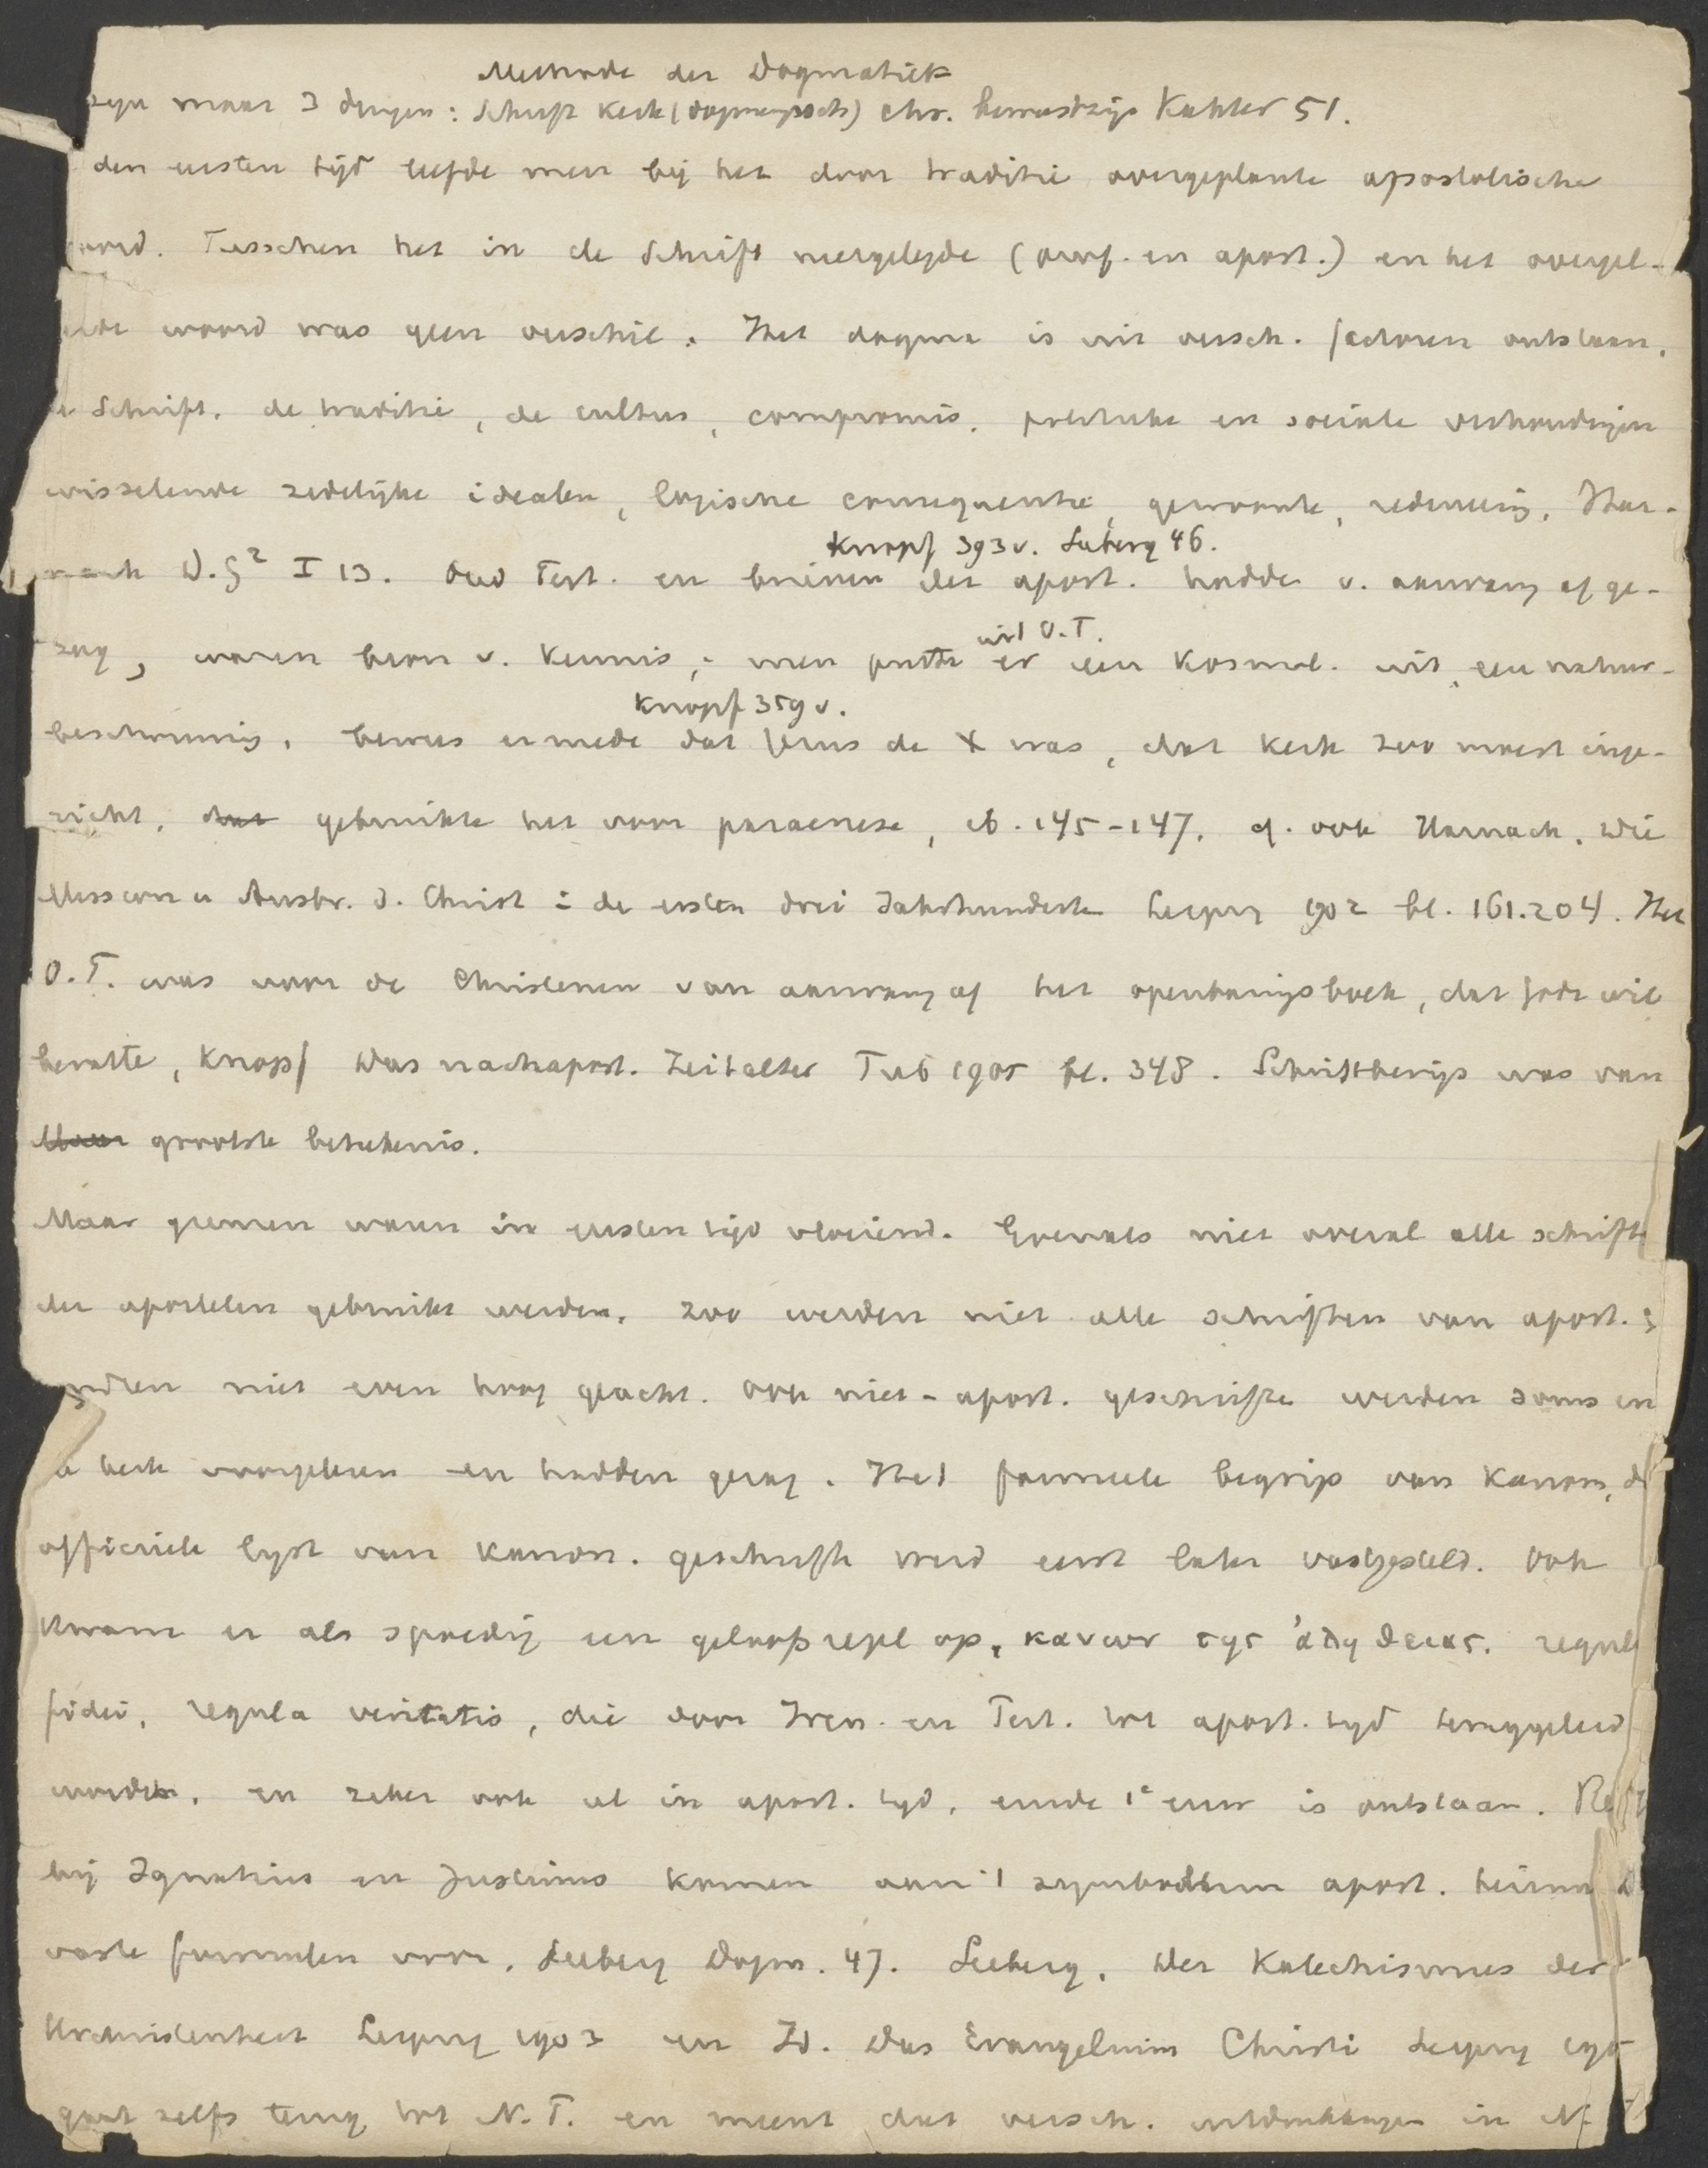 Methode der Dogmatiek
zijn maar 3 dingen: Schrift Kerk (dogmengesch) chr. bewustzijn Kähler 51.
den eersten tijd leefde men bij het door traditie overgeplante apostolische
woord. Tusschen het in de Schrift neergelegde (prof. en apost.) en het overgel-
erde woord was geen verschil. Het dogma is uit versch. factoren ontstaan,
de Schrift, de traditie, de cultus, compromis, politieke en sociale verhoudingen
wisselende zedelijke idealen, logische consequentie, gewoonte, redeneering, Har-
nack D.G² I 13. Oud Test. en brieven der apost. hadden v. aanvang af ge-
Knopf 393 v. Seeberg 46.
zag, waren bron v. kennis, men putte er een Kosmol. uit, een natuur-
uit O.T.
beschouwing, bewees ermede dat Jezus de X was, dat kerk zoo moest inge-
Knopf 359 v.
richt, dat gebruikte het voor paraenese, ib. 145-147. cf. ook Harnack, Die
Mission u Ausbr. d. Christ i de ersten drei Jahrhunderte Leipzig 1902 bl. 161.204. Het
O.T. was voor de Christenen van aanvang af het openbaringsboek, dat Gods wil
bevatte, Knopf Das nachapost. Zeitalter Tub 1905 bl. 348. Schriftbewijs was van
Maar grootste beteekenis.
Maar grenzen waren in eersten tijd vloeiend. Evenals niet overal alle schrift
der apostelen gebruikt werden, zoo werden niet alle schriften van apost.
niet even hoog geacht. Ook niet-apost. geschriften werden soms in
de kerk voorgelezen en hadden gezag. Het formeele begrip van Kanon, d
officieele lijst van kanon. geschrift werd eerst later vastgesteld. Ook
kwam er als spoedig een geloofsregel op, κανων της ἀληθειας, regul
fidei, regula veritatis, die door Iren. en Tert. tot apost. tijd teruggeleid
worden, en zeker ook al in apost. tijd, einde 1e eeuw is ontstaan. Re
bij Ignatius en Justinus komen aan 't symbolum apost. herinn
vaste formulen voor, Seeberg Dogm. 47. Seeberg, Der Katechismus der
Urchristenheit Leipzig 1903 en Id. Das Evangelium Christi Leipzig 190
gaat zelfs terug tot N.T. en meent dat versch. uitdrukkingen in N.